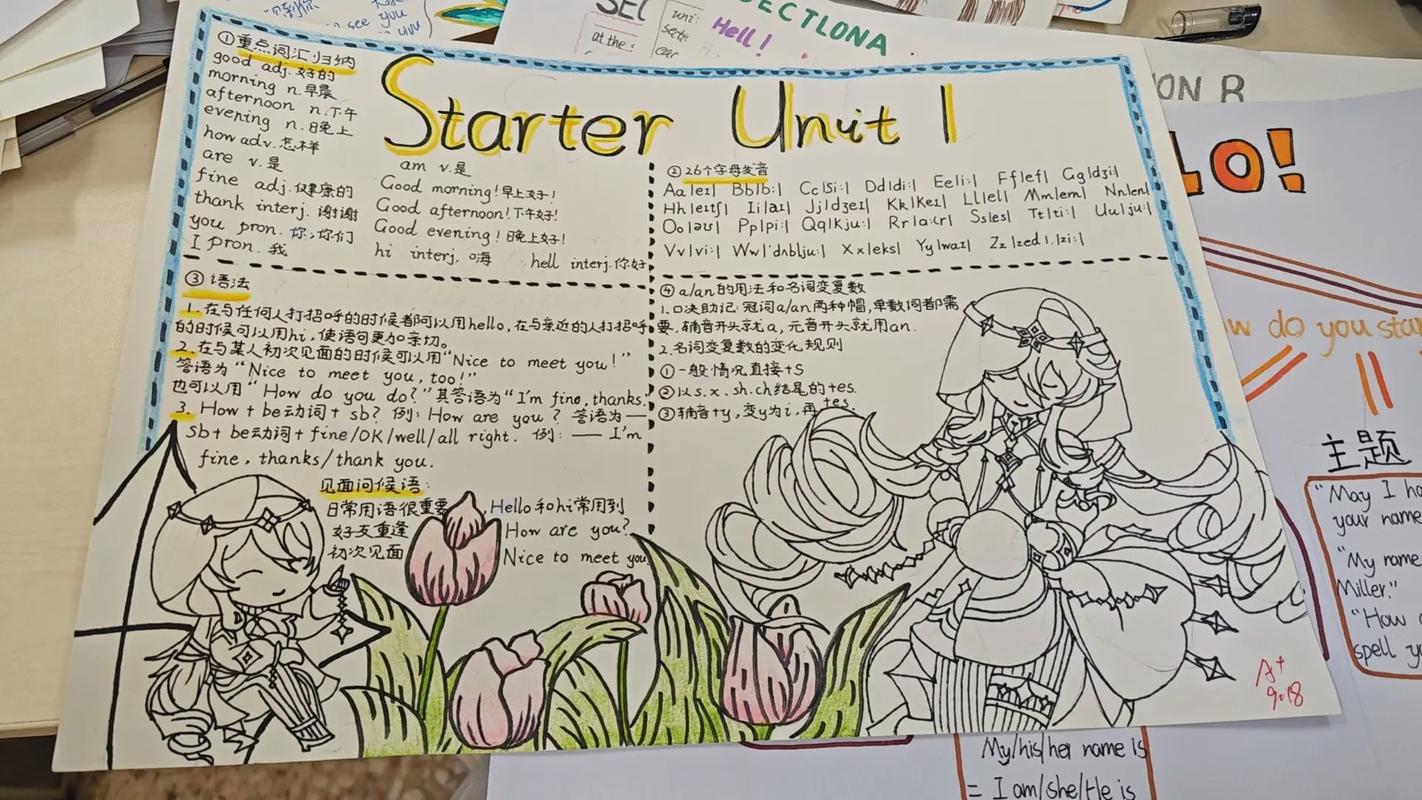 Starter Unit 1
①重点词汇归纳
good adj.好的
morning n.早晨
afternoon n.下午
evening n.晚上
how adv.怎样
are v.是
fine adj.健康的
thank interj.谢谢
you pron.你;你们
I pron.我
am v.是
Good morning!早上好!
Good afternoon!下午好!
Good evening!晚上好!
hi interj.嗨 hell interj.你好
②26个字母发音
Aa|eɪ| Bb|b:| Cc|si:| Dd|di:| Ee|i:| Ff|ef| Gg|dʒi|
Hh|eɪtʃ| Ii|aɪ| Jj|dʒeɪ| Kk|keɪ| Ll|el| Mm|em| Nn|en|
Oo|əʊ| Pp|pi:| Qq|kju:| Rr|a:(r| Ss|es| Tt|ti:| Uu|ju:|
Vv|vi:| Ww|'dʌblju:| Xx|eks| Yy|waɪ| Zz|zed|.|zi:|
③语法
1.在与任何人打招呼的时候都可以用hello,在与亲近的人打招呼
的时候可以用hi,使语句更加亲切。
2.在与某人初次见面的时候可以用"Nice to meet you!"
答语为"Nice to meet you, too!"
也可以用"How do you do?"其答语为"I'm fine, thanks.
3. How + be动词 + sb? 例: How are you? 答语为——
sb + be动词 + fine/OK/well/all right. 例: —— I'm
fine, thanks/thank you.
见面问候语:
日常用语很重要 Hello和hi常用到
好友重逢 How are you?
初次见面 Nice to meet you
④a/an的用法和名词变复数
1.口决助记:冠词a/an两种帽,单数词都需
要.辅音开头就a,元音开头就用an.
2.名词变复数的变化规则
①一般情况直接+s
②以s.x.sh.ch结尾的+es.
③辅音+y,变y为i,再+es.
A+
9.18
see you
SEC
at the
SECTIONA
Hell!
ION B
LO!
do you
主题
"May I ha
your name
"My name
Miller."
"How
spell yo
My/his/her name is
= I am/she/He is